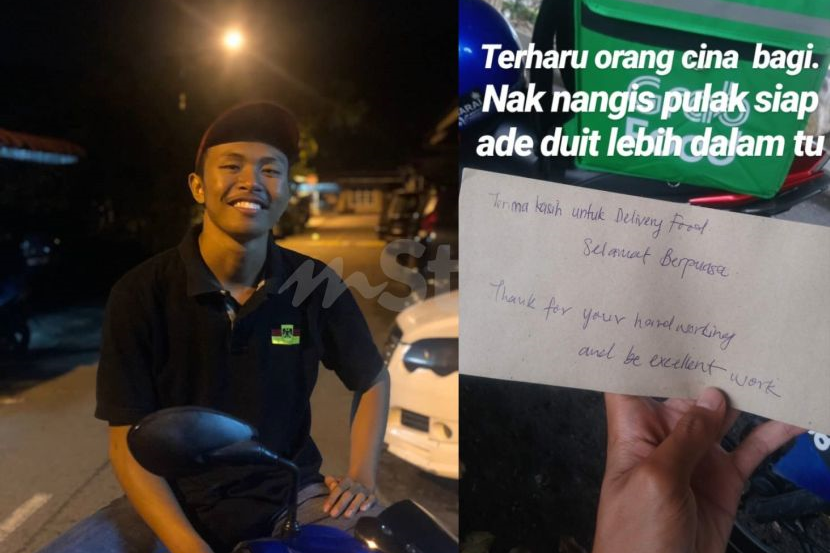 Terharu orang cina bagi.
Nak nangis pulak siap
ade duit lebih dalam tu
Grab
Food
Terima kasih untuk Delivery Food
Selamat Berpuasa
Thank for your hardworking
and be excellent work
mSt